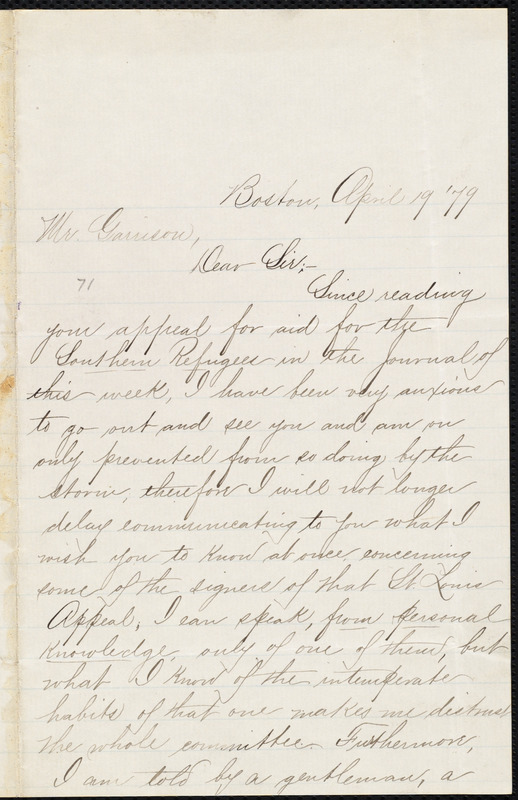 Boston, April 19 '79
Mr. Garrison,
Dear Sir;-
71
Since reading
your appeal for aid for the
Southern Refugees in the Journal of
this week, I have been very anxious
to go out and see you and am on
only prevented from so doing by the
storm, therefore I will not longer
delay communicating to you what I
wish you to know at once concerning
some of the signers of that St. Louis
Appeal; I can speak, from personal
knowledge, only of one of them, but
what I know of the intemperate
habits of that one makes me distrust
the whole committee. Futhermore,
I am told by a gentleman, a